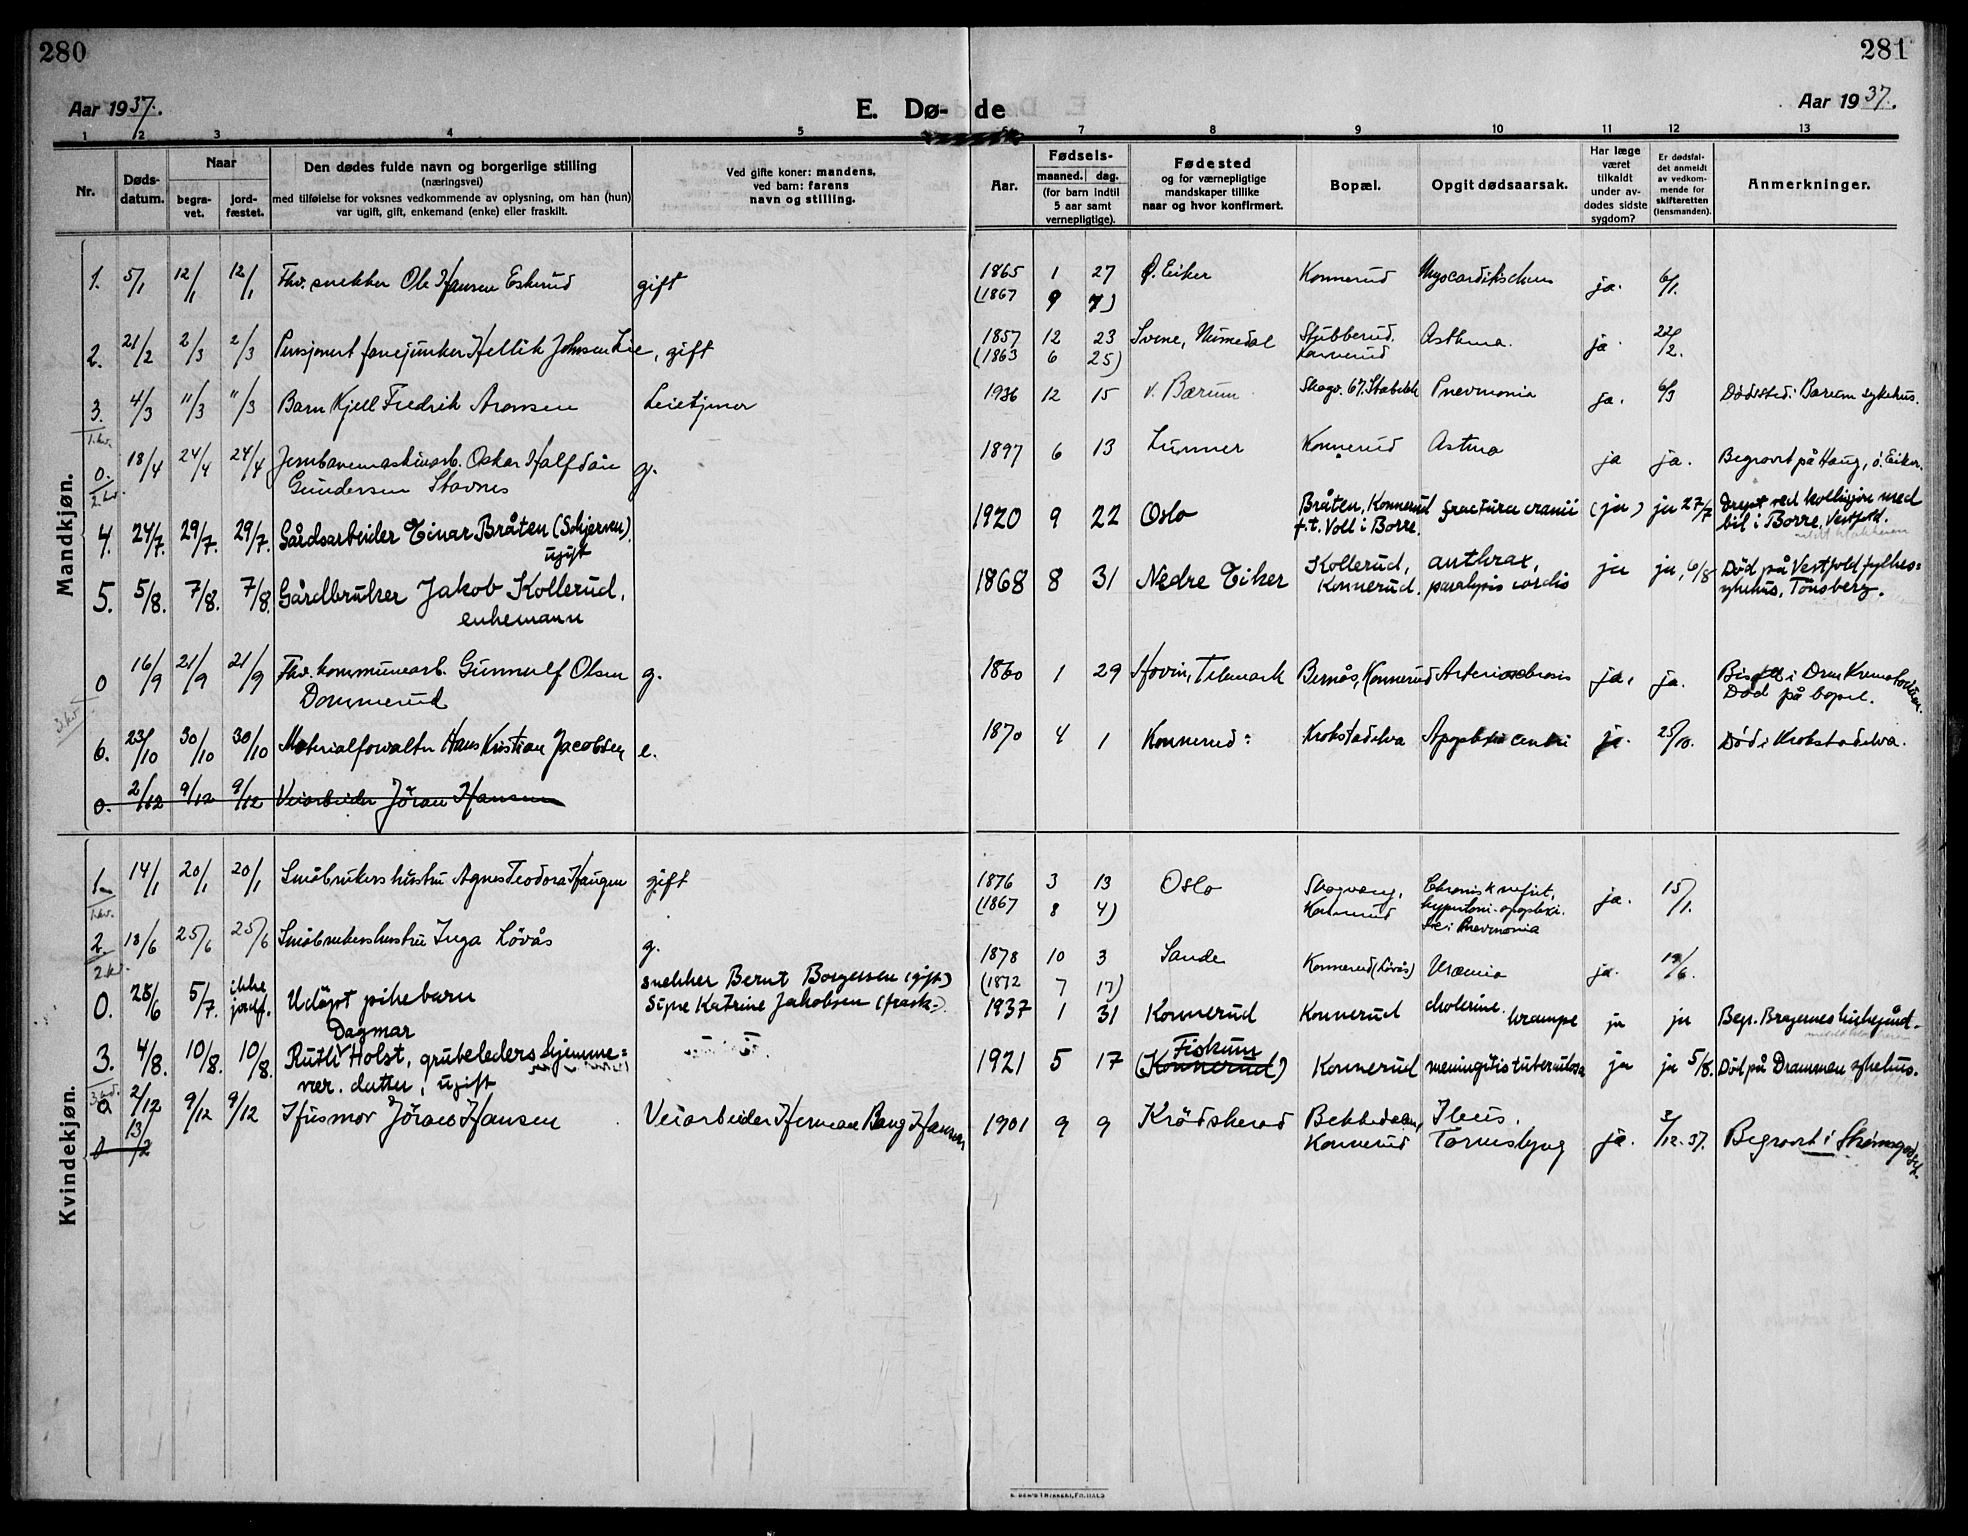 280
281
Aar 1937.
E. Dø- de
Aar 1937.
1 2 3 4 5 7 8 9 10 11 12 13
Nr.
Døds-
datum.
Naar
begra-
vet.
jord-
fæstet.
Den dødes fulde navn og borgerlige stilling
(næringsvei)
med tilføielse for voksnes vedkommende av oplysning, om han (hun)
var ugift, gift, enkemand (enke) eller fraskilt.
Ved gifte koner: mandens,
ved barn: farens
navn og stilling.
Aar.
Fødsels-
maaned. dag.
(for barn indtil
5 aar samt
vernepligtige).
Fødested
og for værnepligtige
mandskaper tillike
naar og hvor konfirmert.
Bopæl.
Opgit dødsaarsak.
Har læge
været
tilkaldt
under av-
dødes sidste
sygdom?
Er dødsfal-
det anmeldt
av vedkom-
mende for
skifteretten
(lensmanden).
Anmerkninger.
Mandkjøn.
1. 5/1 12/1 12/1 Fhv. snekker Ole Hansen Eskerud gift 1865 1 27 Ø. Eiker Konnerud ja. 6/1.
(1867 9 7)
2. 21/2 2/3 2/3 Pensjonert fanejunker Hellik Johnsen Lie, gift 1857 12 23 Svene, Numedal Stubberud, Asthma. ja 22/2.
(1863 6 25) Konnerud
3. 4/3 11/3 11/3 Barn Kjell Fredrik Aronsen 1936 12 15 v. Bærum Skogv. 67, Stabekk Pnevmonia ja. 6/3 Dødsted: Bærum sykehus.
1. kv.
0. 18/4 24/4 24/4 Jernbanemaskinarb. Oskar Halfdan g. 1897 6 13 Lunner Konnerud Astma ja ja. Begravet på Haug, ø. Eiker.
2. kv. Gundersen Stavnes
4. 24/7. 29/7. 29/7. Gårdsarbeider Einar Bråten (Schjerven) 1920 9 22 Oslo Bråten, Konnerud fractura cranii (ja) ja 27/7 Drept ved kollisjon med
ugift f.t. Voll i Borre. bil i Borre, Vestfold.
5. 5/8. 7/8. 7/8. Gårdbruker Jakob Kollerud, 1868 8 31 Nedre Eiker Kollerud, anthrax, ja ja, 6/8 Død på Vestfold fylkes=
enkemann Konnerud. paralysis cordis sykehus, Tønsberg.
0 16/9 21/9 21/9 Fhv. kommunearb. Gunnulf Olsen g. 1860 1 29 Hovin, Telemark Bernås, Konnerud ja, ja. Bisatt i Drm Krematorium.
3. kv Dommerud Død på bopel.
6. 23/10 30/10 30/10 Materialforvalter Hans Kristian Jacobsen e. 1870 4 1 Konnerud: Krokstadelva ja. 25/10. Død i Krokstadelva.
0. 2/12 9/12 9/12 Veiarbeider Jöran Hansen
Kvindekjøn.
1. 14/1 20/1 20/1 Småbrukers hustru Agnes Teodora Haugen gift 1876 3 13 Oslo Skogvang, Chronisk nefrit, ja. 15/1.
1. kv. (1867 8 4) Konnerud hypertoni. apoplexi.
Pnevmonia
2. 18/6 25/6 25/6 Småbrukershustru Inga Lövås g. 1878 10 3 Sande Konnerud (Lövås) Uræmia ja. 19/6.
2. kv. (1872 7 17)
0. 28/6 5/7. ikke jordf. Udöpt pikebarn snekker Bernt Borgersen (gift) 1937 1 31 Konnerud Konnerud cholerine. krampe ja ja Begr. Bragernes kirkegård
Signe Katrine Jakobsen (frask.)
Dagmar
3. 4/8. 10/8. 10/8. Ruth Holst, grubeleders hjemme= 1921 5 17 Fiskum Konnerud meningitis tuberculosa ja ja 5/8. Død på Drammen sykehus.
3. kv. vær. datter, ugift (Konnerud)
0 2/12 9/12 9/12 Husmor Jöran Hansen Veiarbeider Herman Bang Hansen 1901 9 9 Krödsherad Bekkedalen, Ileus. ja. 3/12.37. Begravet i Skomsgodgf.
0 13/12 Konnerud